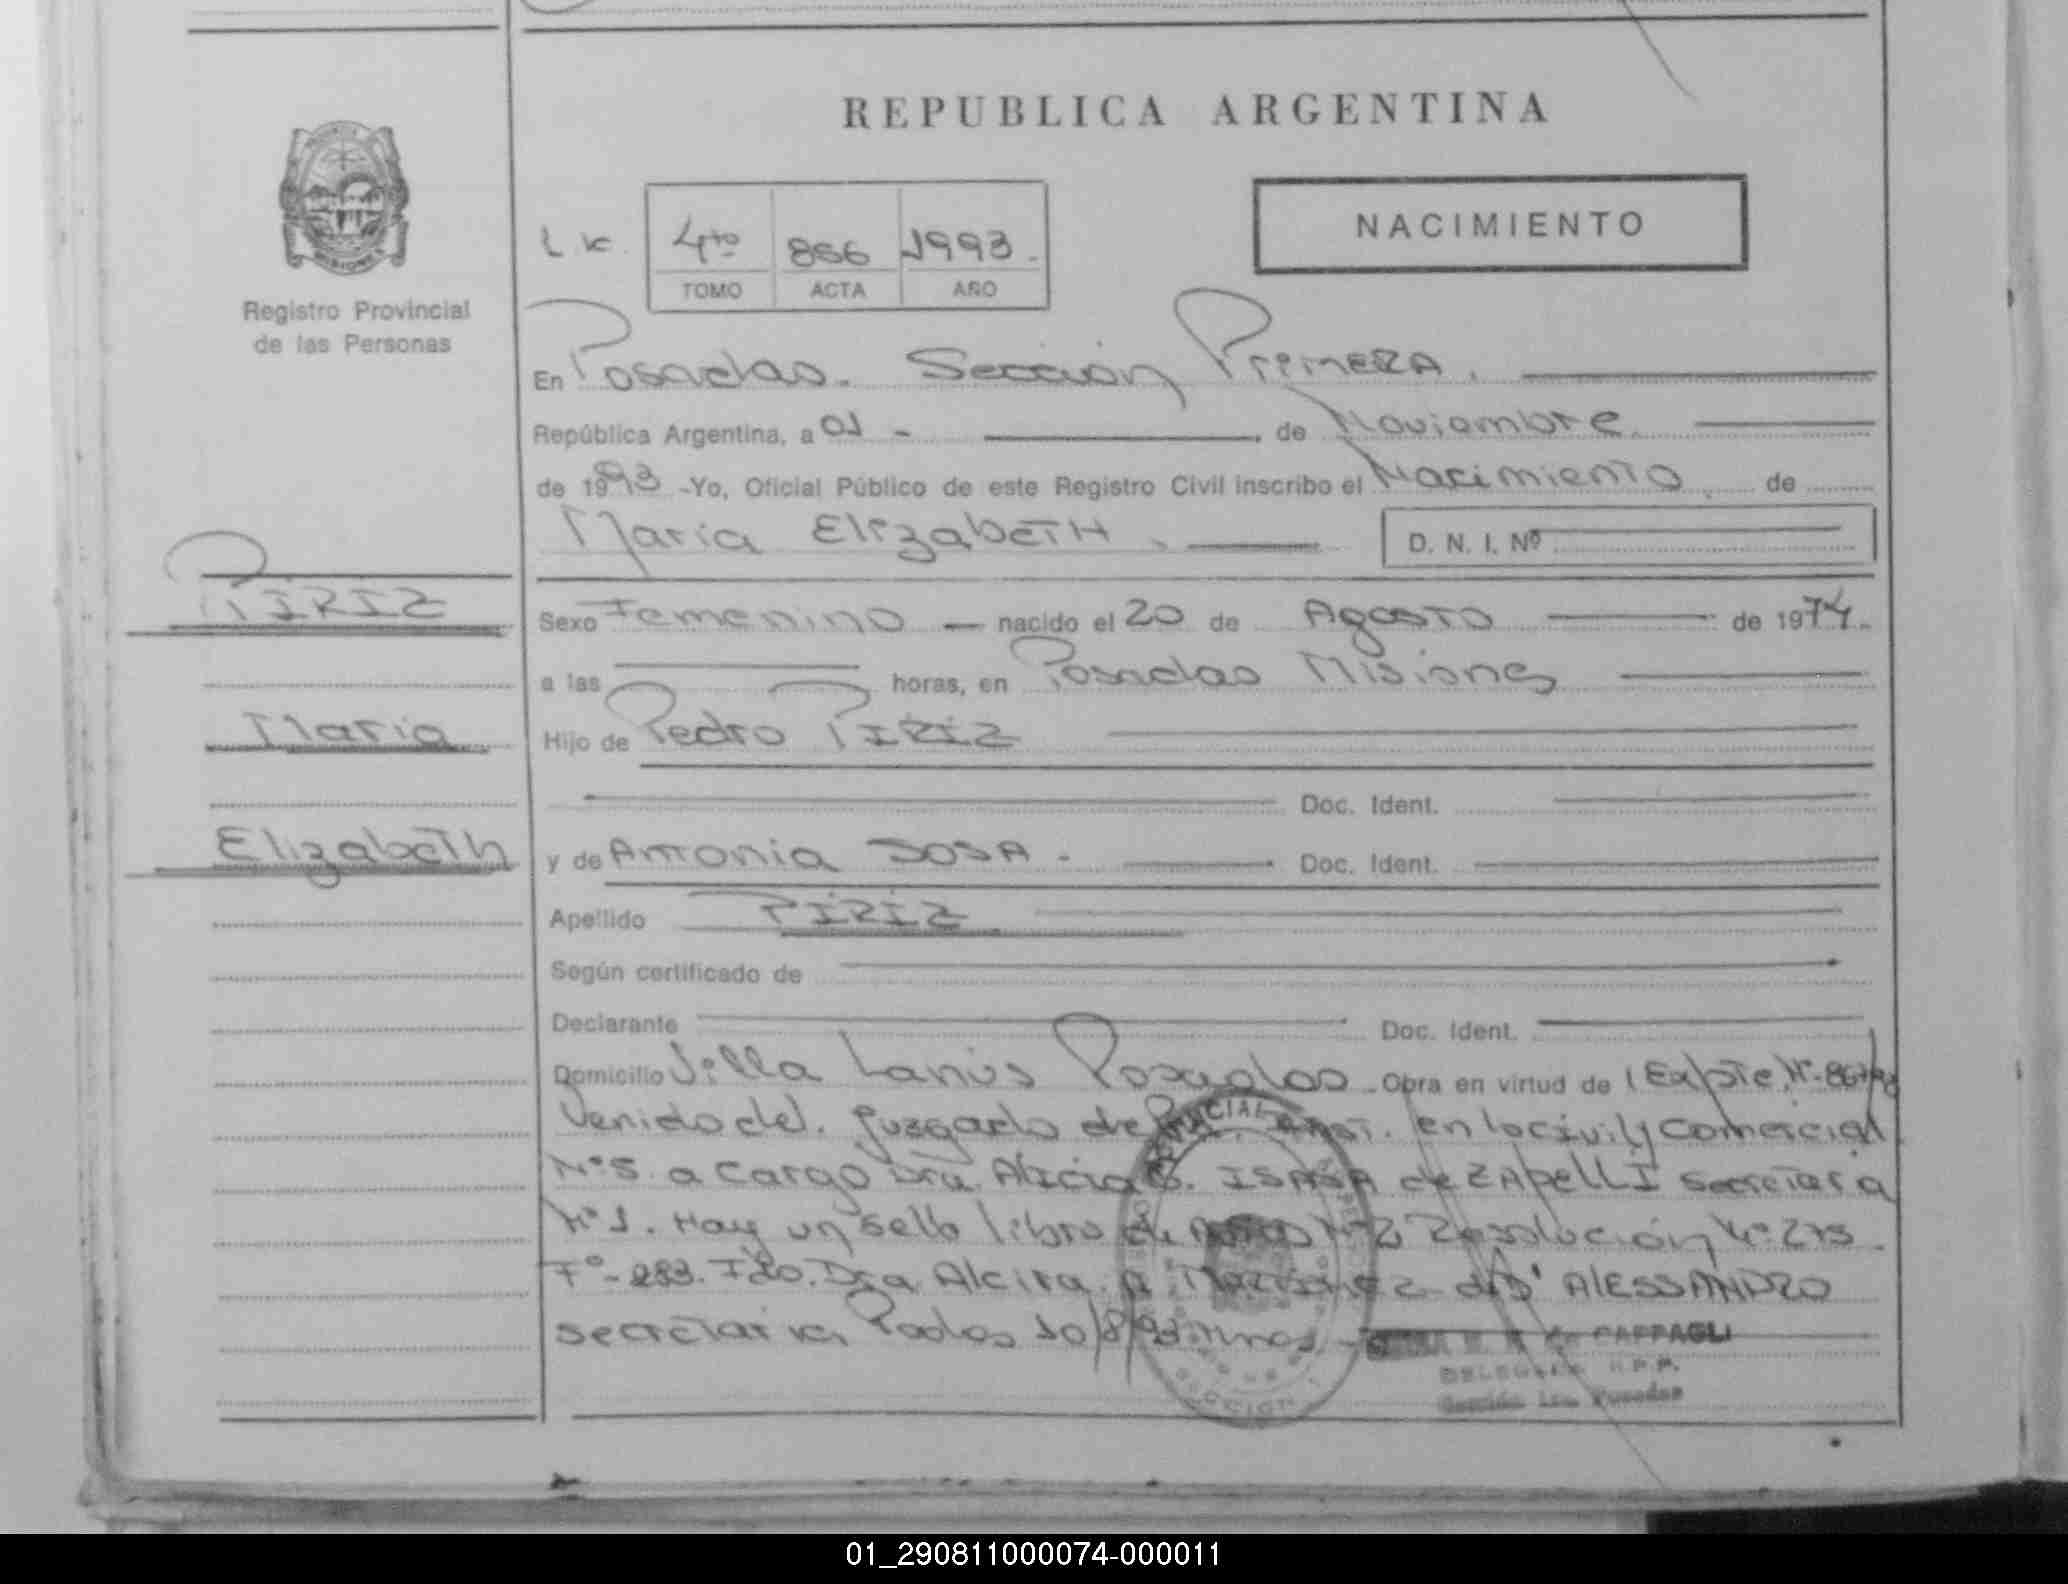 REPUBLICA ARGENTINA
NACIMIENTO
4to 866 1993.
TOMO ACTA AÑO
MISIONES
Registro Provincial
de las Personas
En Posadas. Sección Primera.
República Argentina, a 01 - de Noviembre.
de 1993 -Yo, Oficial Público de este Registro Civil inscribo el Nacimiento. de
Maria Elizabeth. D. N. I. Nº
PIRIZ
Sexo Femenino nacido el 20 de Agosto de 1974.
a las horas, en Posadas Misiones
Maria
Hijo de Pedro PIRIZ
Doc. Ident.
Elizabeth
y de Antonia SOSA. Doc. Ident.
Apellido PIRIZ
Según certificado de
Declarante Doc. Ident.
Domicilio Villa Lanús Posadas Obra en virtud de Expte. Nº
Venido del. juzgado de en lo civil y comercial
Nº 5. a cargo Dra. Alicia ISASA de ZAPELLI secretaria
Nº 1. Hay un sello libro de Nº 2 Resolución Nº 275.
Fº- 283. Fdo. Dra Alcira A Martinez de D' ALESSANDRO
secretaria, Posdas 10/8/93.
CAFFAGLI
DELEGADA R.P.P.
Sección 1ra. Posadas
SECCION 1
01_290811000074-000011